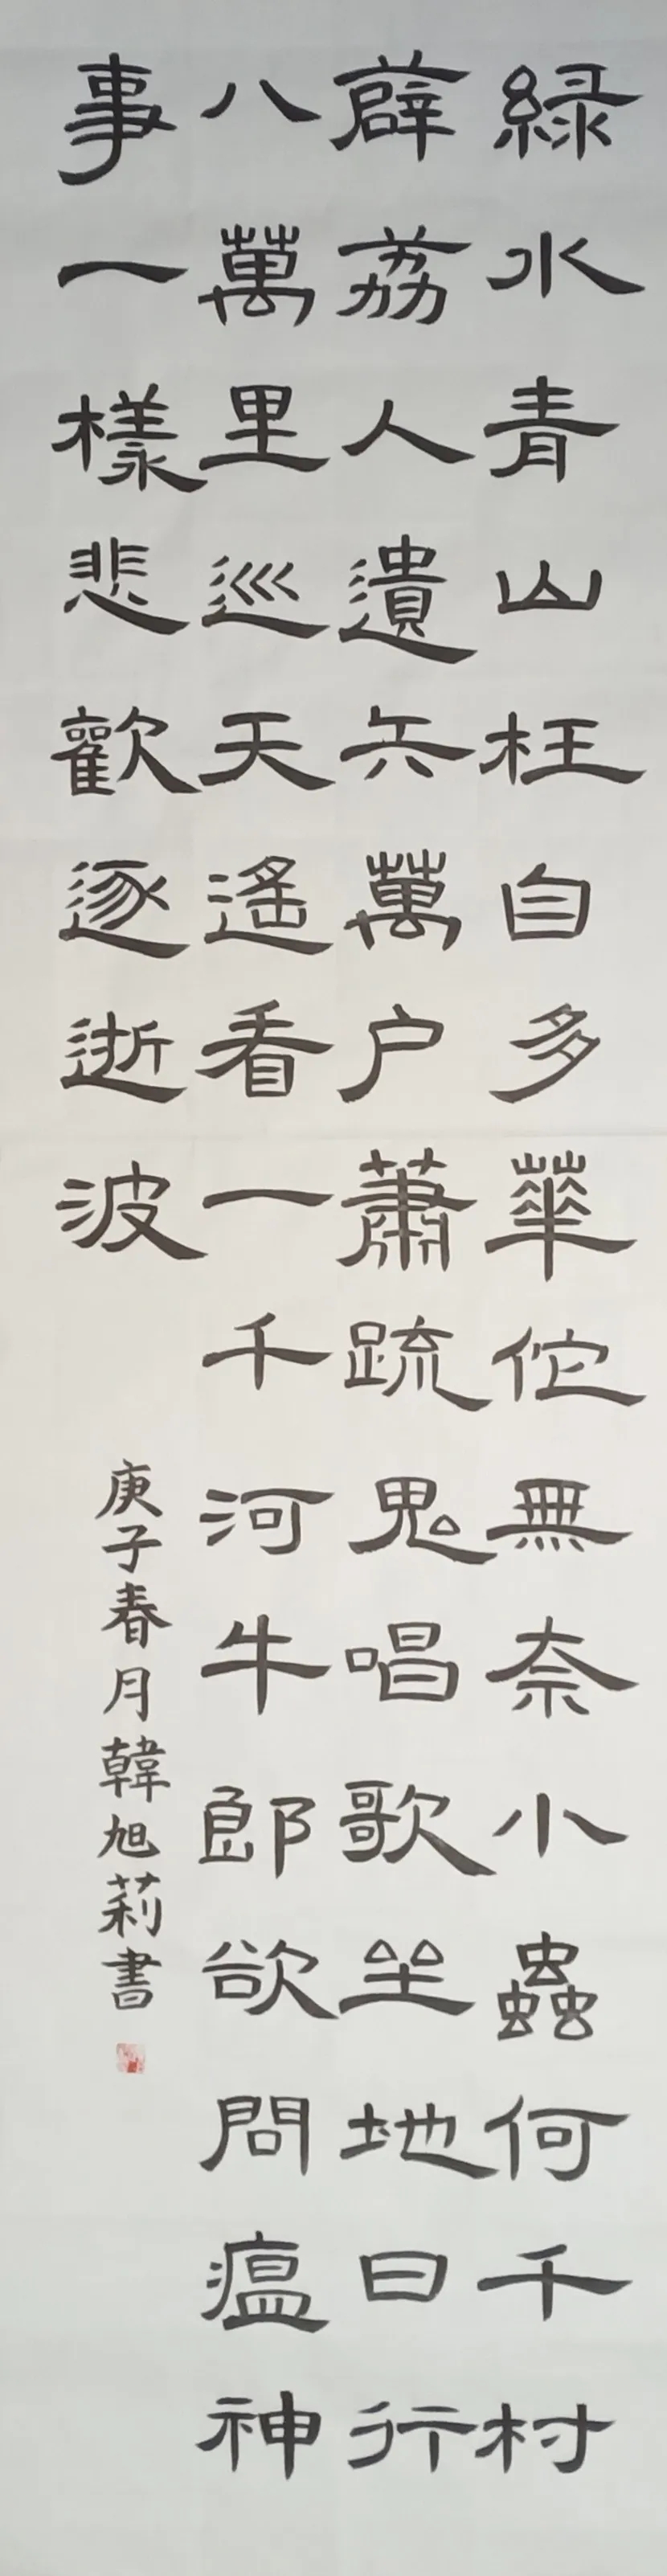 緑水青山枉自多華佗無奈小蟲何千村
薜荔人遺矢萬户蕭疏鬼唱歌坐地日行
八萬里巡天遙看一千河牛郎欲問瘟神
事一樣悲歡逐逝波
庚子春月韓旭莉書